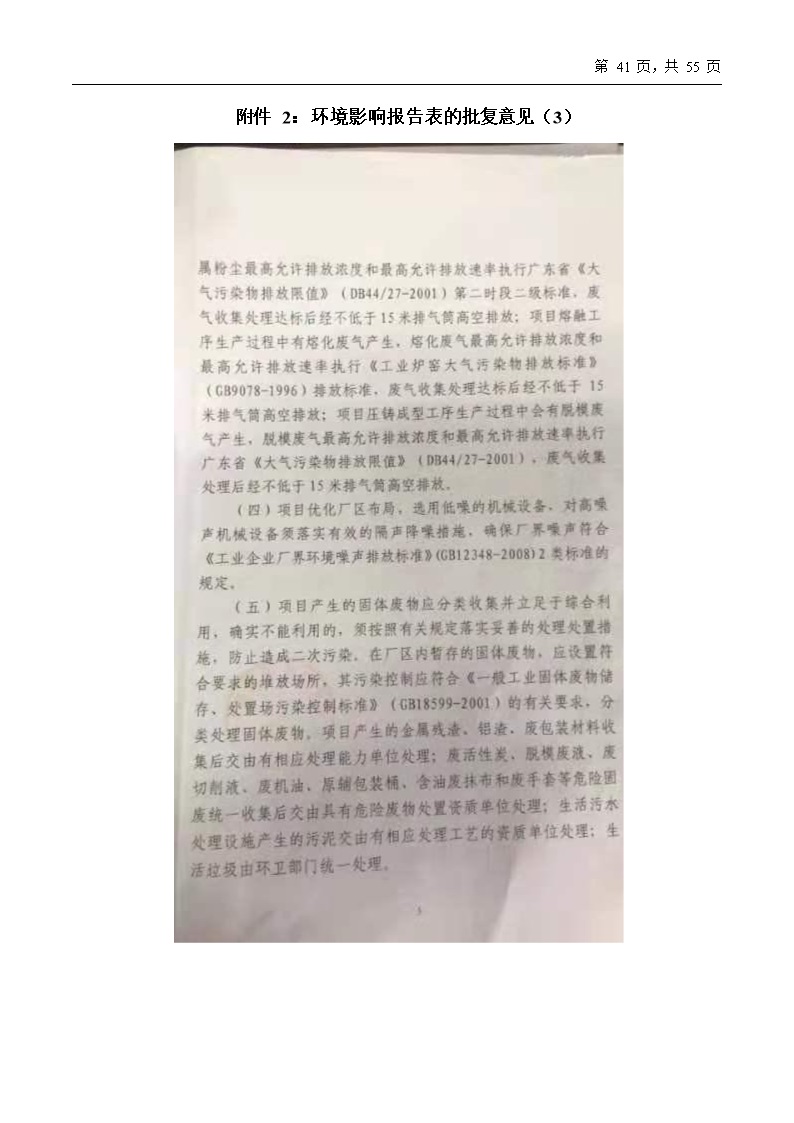 第 41 页，共 55 页
附件 2：环境影响报告表的批复意见（3）
属粉尘最高允许排放浓度和最高允许排放速率执行广东省《大
气污染物排放限值》（DB44/27-2001）第二时段二级标准，废
气收集处理达标后经不低于15米排气筒高空排放；项目熔融工
序生产过程中有熔化废气产生，熔化废气最高允许排放浓度和
最高允许排放速率执行《工业炉窑大气污染物排放标准》
（GB9078-1996）排放标准，废气收集处理达标后经不低于 15
米排气筒高空排放；项目压铸成型工序生产过程中会有脱模废
气产生，脱模废气最高允许排放浓度和最高允许排放速率执行
广东省《大气污染物排放限值》（DB44/27-2001），废气收集
处理后经不低于15米排气筒高空排放。
（四）项目优化厂区布局，选用低噪的机械设备，对高噪
声机械设备须落实有效的隔声降噪措施，确保厂界噪声符合
《工业企业厂界环境噪声排放标准》(GB12348-2008)2 类标准的
规定。
（五）项目产生的固体废物应分类收集并立足于综合利
用，确实不能利用的，须按照有关规定落实妥善的处理处置措
施，防止造成二次污染。在厂区内暂存的固体废物，应设置符
合要求的堆放场所，其污染控制应符合《一般工业固体废物储
存、处置场污染控制标准》（GB18599-2001）的有关要求，分
类处理固体废物。项目产生的金属残渣、铝渣、废包装材料收
集后交由有相应处理能力单位处理；废活性炭、脱模废液、废
切削液、废机油、原辅包装桶、含油废抹布和废手套等危险固
废统一收集后交由具有危险废物处置资质单位处理；生活污水
处理设施产生的污泥交由有相应处理工艺的资质单位处理；生
活垃圾由环卫部门统一处理。
3